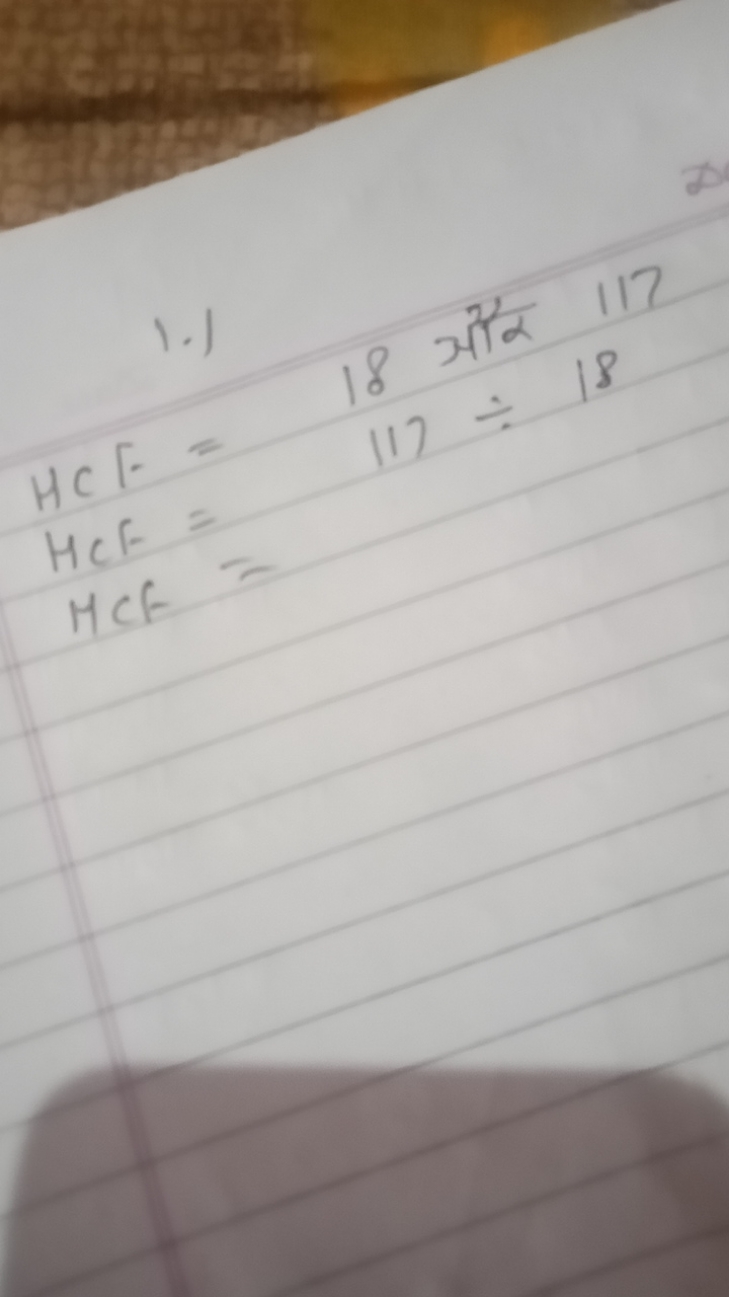 1.1
HCF = 18 और 117
HCF = 117 ÷ 18
HCF =